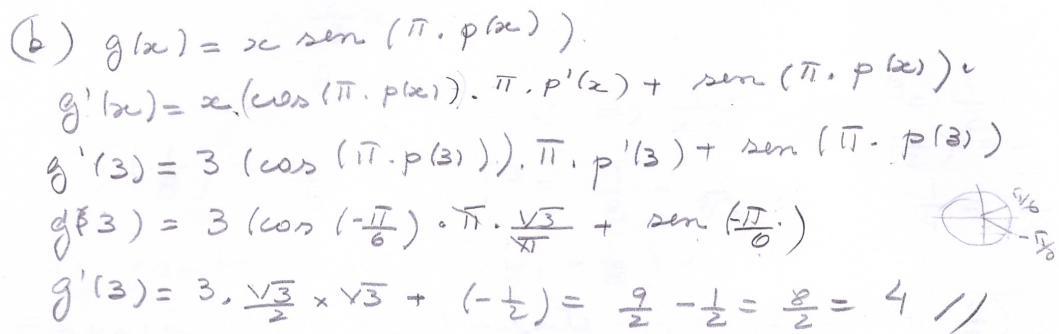 (b) g(x) = x sen (π. p(x)).
g'(x) = x.(cos (π. p(x)). π. p'(x) + sen (π. p(x)).
g'(3) = 3 (cos (π. p(3))). π. p'(3) + sen (π. p(3))
g(3) = 3 (cos (-π/6) . π. √3/π + sen (-π/6.) π/6 -π/6
g'(3) = 3. √3/2 x √3 + (-1/2) = 9/2 - 1/2 = 8/2 = 4 //